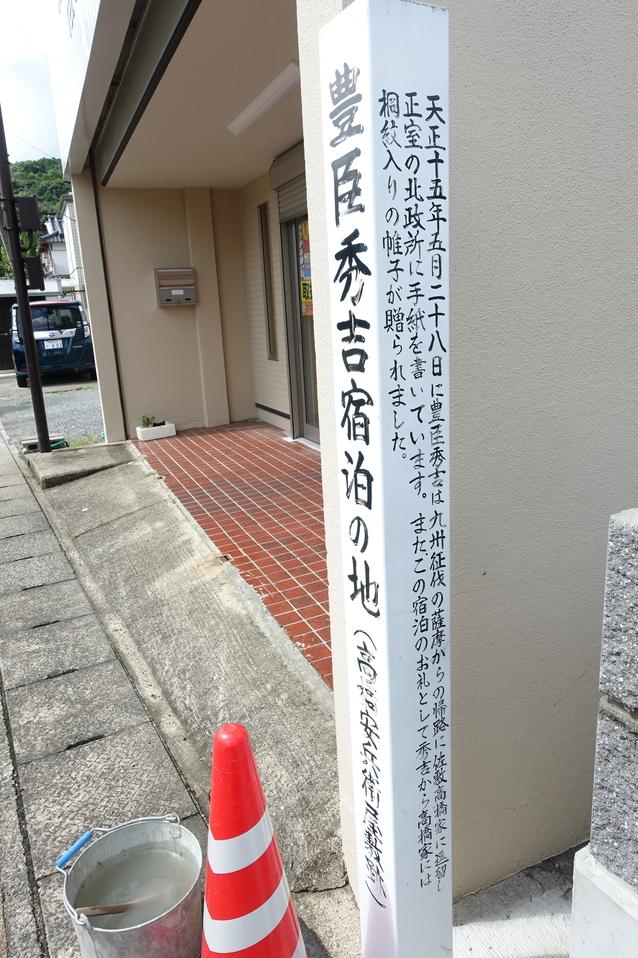 豊臣秀吉宿泊の地(高橋安兵衛屋敷跡)
天正十五年五月二十八日に豊臣秀吉は九州征伐の薩摩からの帰路に佐敷高橋家に逗留し
正室の北政所に手紙を書いています。またこの宿泊のお礼として秀吉から高橋家には
桐紋入りの帷子が贈られました。